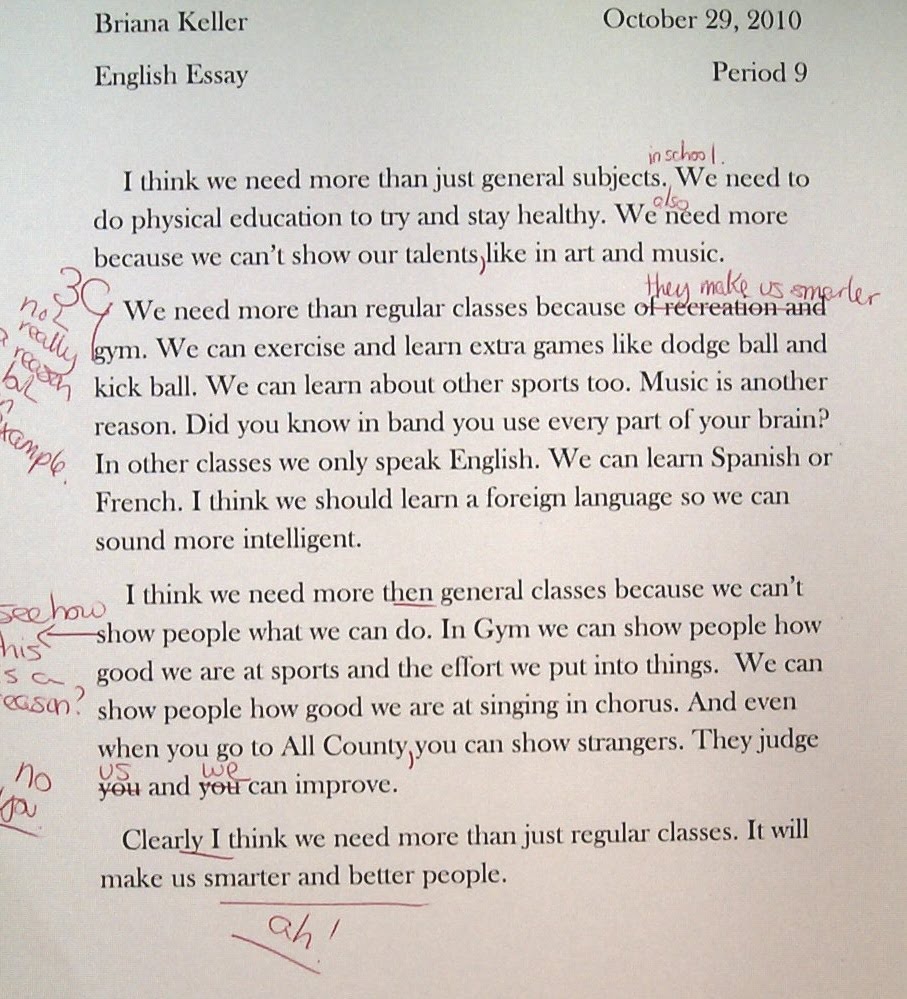 Briana Keller October 29, 2010
English Essay Period 9
in school.
I think we need more than just general subjects. We need to
also
do physical education to try and stay healthy. We need more
because we can't show our talents, like in art and music.
3C
they make us smarter
We need more than regular classes because of recreation and
gym. We can exercise and learn extra games like dodge ball and
kick ball. We can learn about other sports too. Music is another
reason. Did you know in band you use every part of your brain?
In other classes we only speak English. We can learn Spanish or
French. I think we should learn a foreign language so we can
sound more intelligent.
not
really
a
reason
but
n
xample.
I think we need more then general classes because we can't
show people what we can do. In Gym we can show people how
good we are at sports and the effort we put into things. We can
show people how good we are at singing in chorus. And even
when you go to All County, you can show strangers. They judge
us we
you and you can improve.
see how
his
s a
eason?
no
you
Clearly I think we need more than just regular classes. It will
make us smarter and better people.
ah!